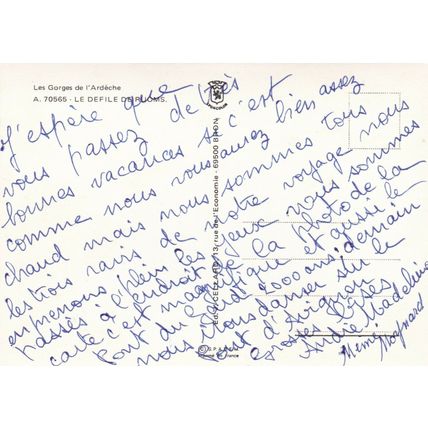 Les Gorges de l'Ardèche
A. 70565 - LE DEFILE DE RUOMS.
J'espère que
vous passez de très
bonnes vacances si c'est
comme nous vous aurez bien assez
chaud mais nous sommes tous
les trois ravis de notre voyage nous
en prenons plein les yeux nous sommes
passés à l'endroit de la photo de la
carte c'est magnifique et aussi le
Pont du Gard 2000 ans, demain
nous irons danser sur le
Pont d'Avignon
grosses bises
André Madeleine
Mémé
13, rue de l'Economie - 69500 BRON